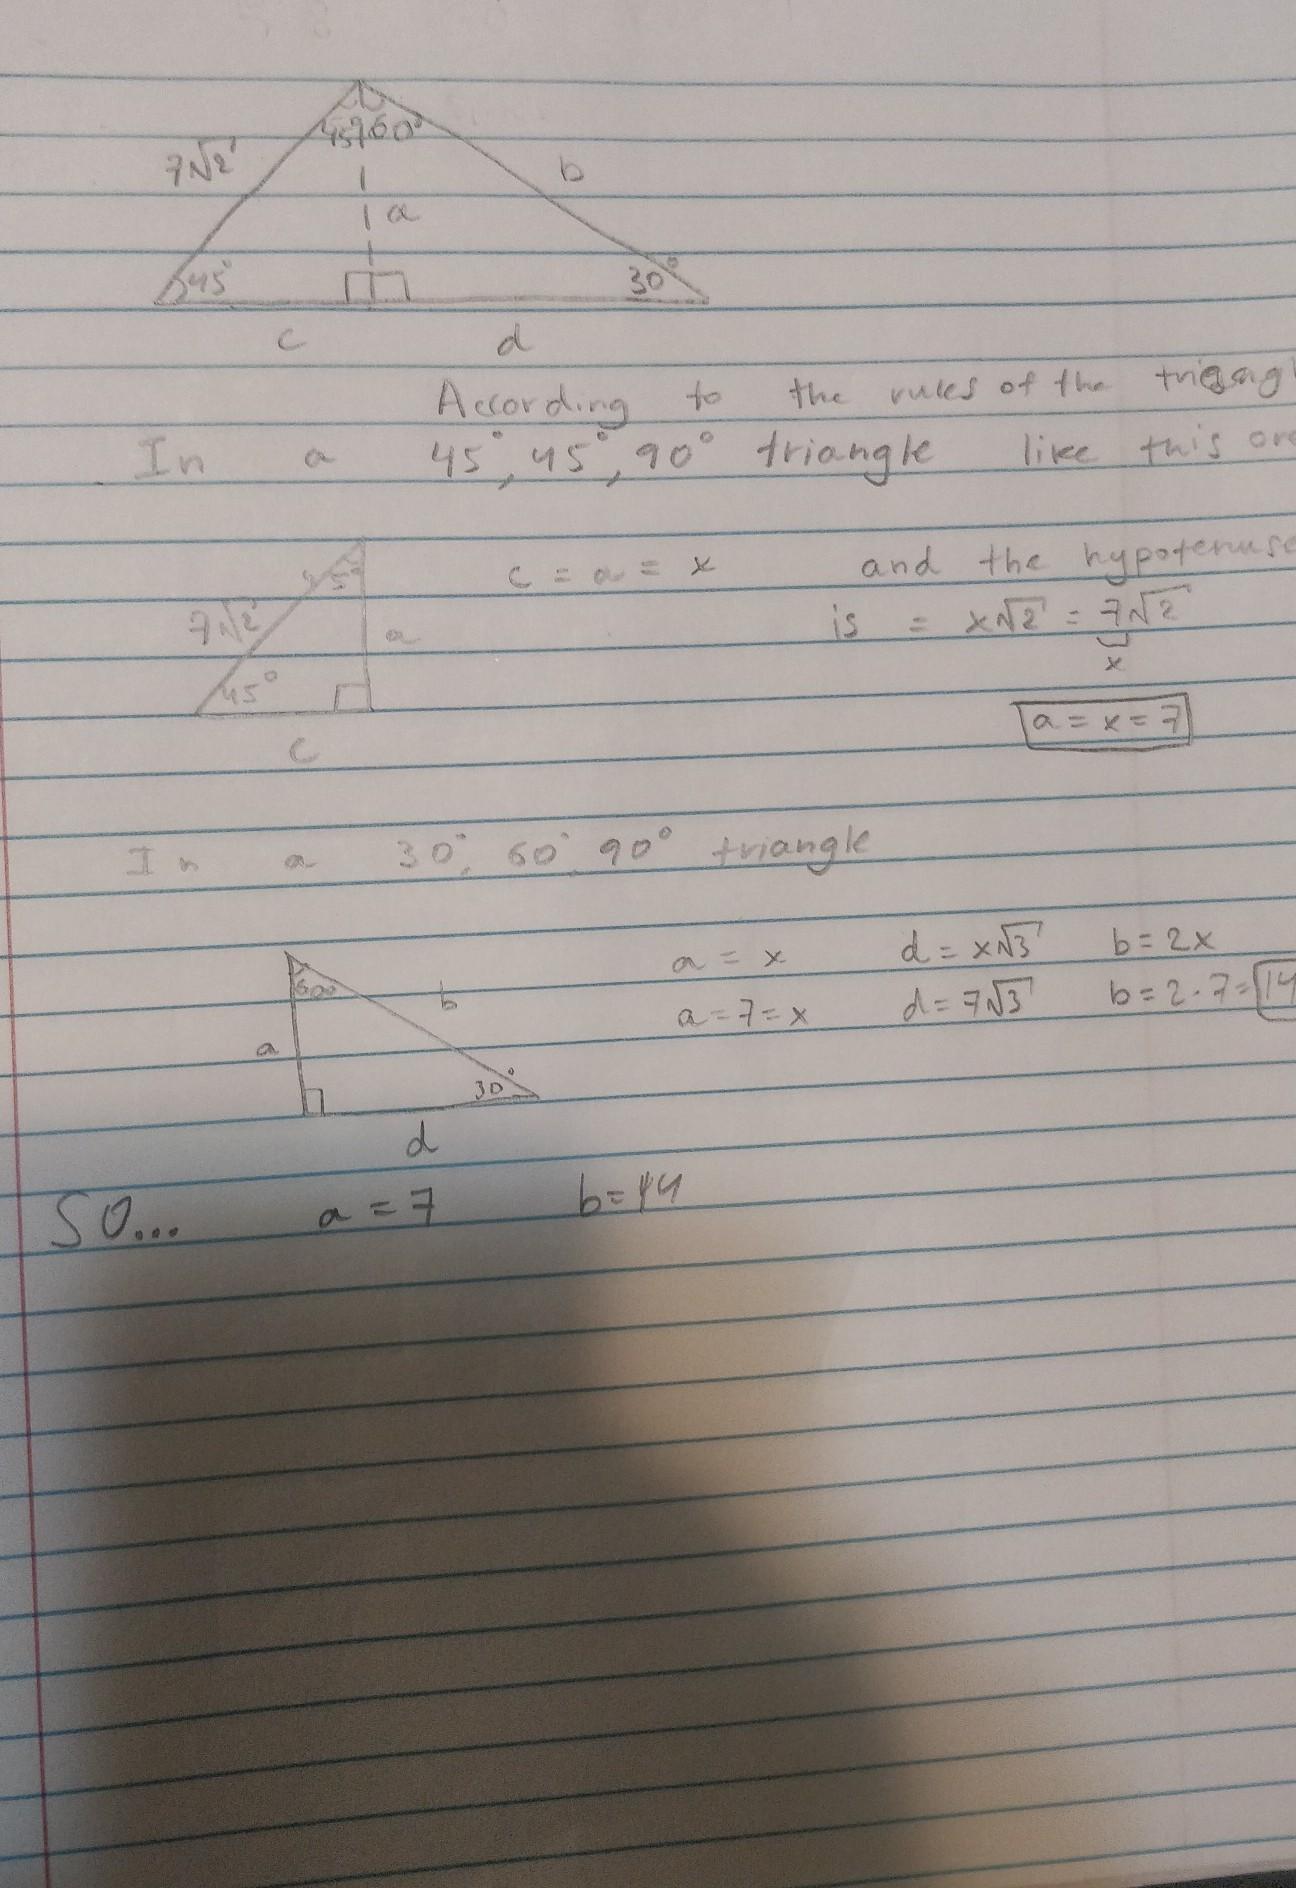 45° 60°
7√2
b
a
45°
30°
c
d
According to the rules of the
In a 45°, 45°, 90° triangle like this
c = a = x and the hypotenuse
7√2
is = x√2 = 7√2
a
x
45°
a = x = 7
c
In a 30°, 60°, 90° triangle
a = x d = x√3 b = 2x
60°
b
a = 7 = x d = 7√3 b = 2 · 7 = 14
a
30°
d
SO... a = 7 b = 14